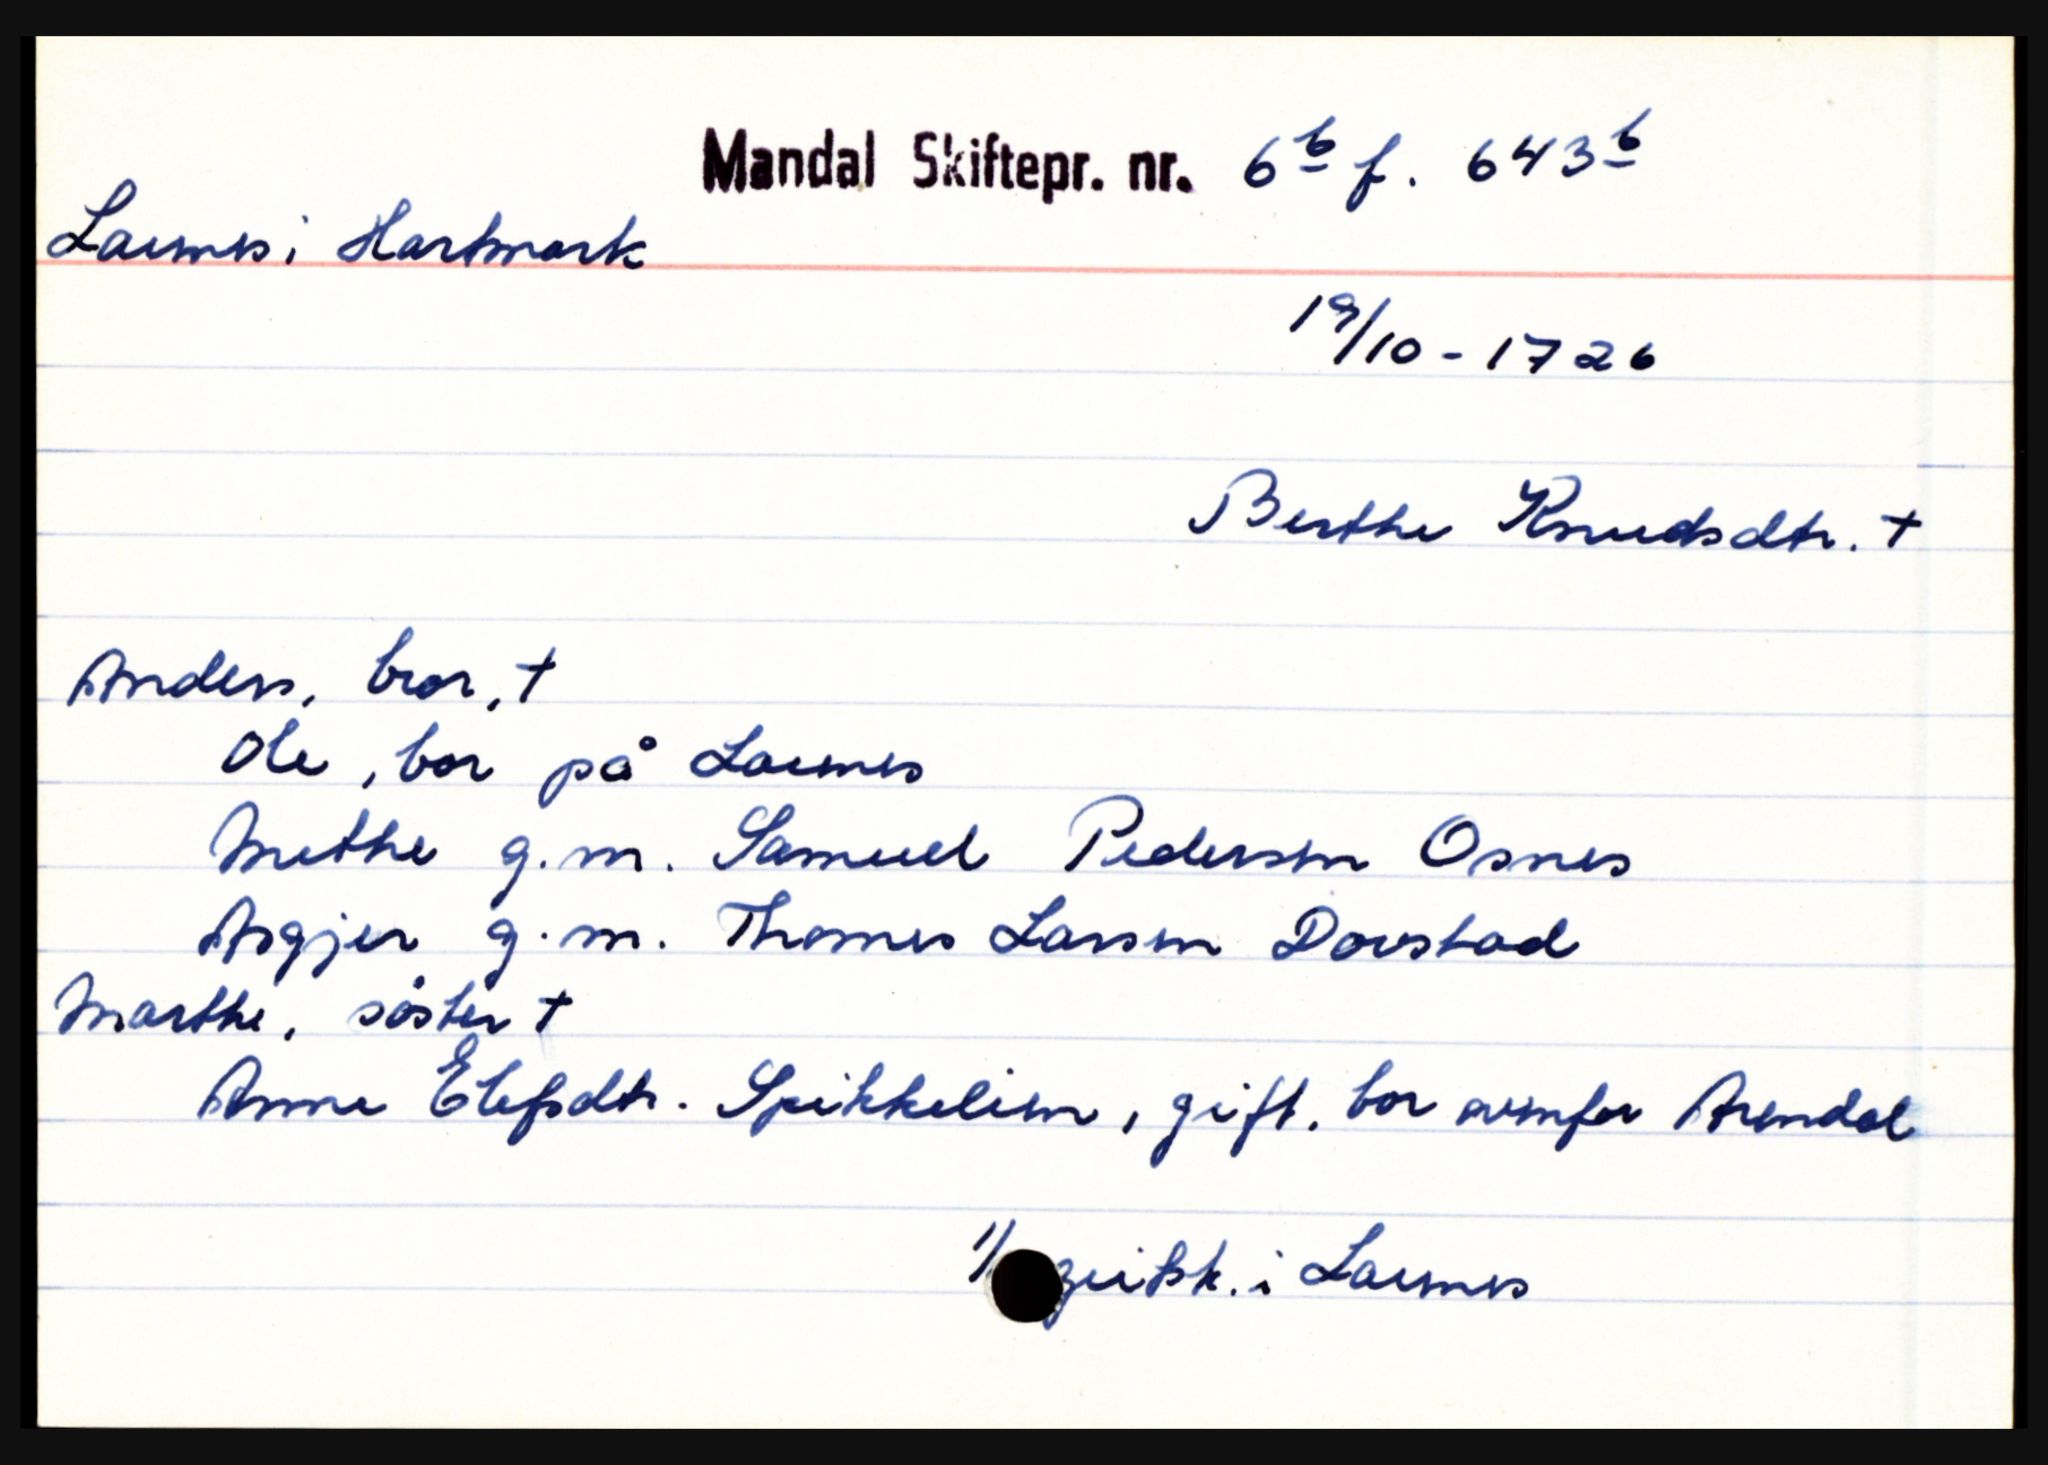 Mandal Skiftepr. nr. 6 b f. 643 b
Launes i Hartmark
19/10 - 1726
Berthe Knudsdtr. †
Anders, bror, †
Ole, bor på Launes
Methe g.m. Samuel Pedersen Osnes
Asgjer g.m. Thomes Larsen Dovstad
Marthe, søster †
Anne Elefsdtr. Spikkelien, gift, bor ovenfor Arendal
i Launes